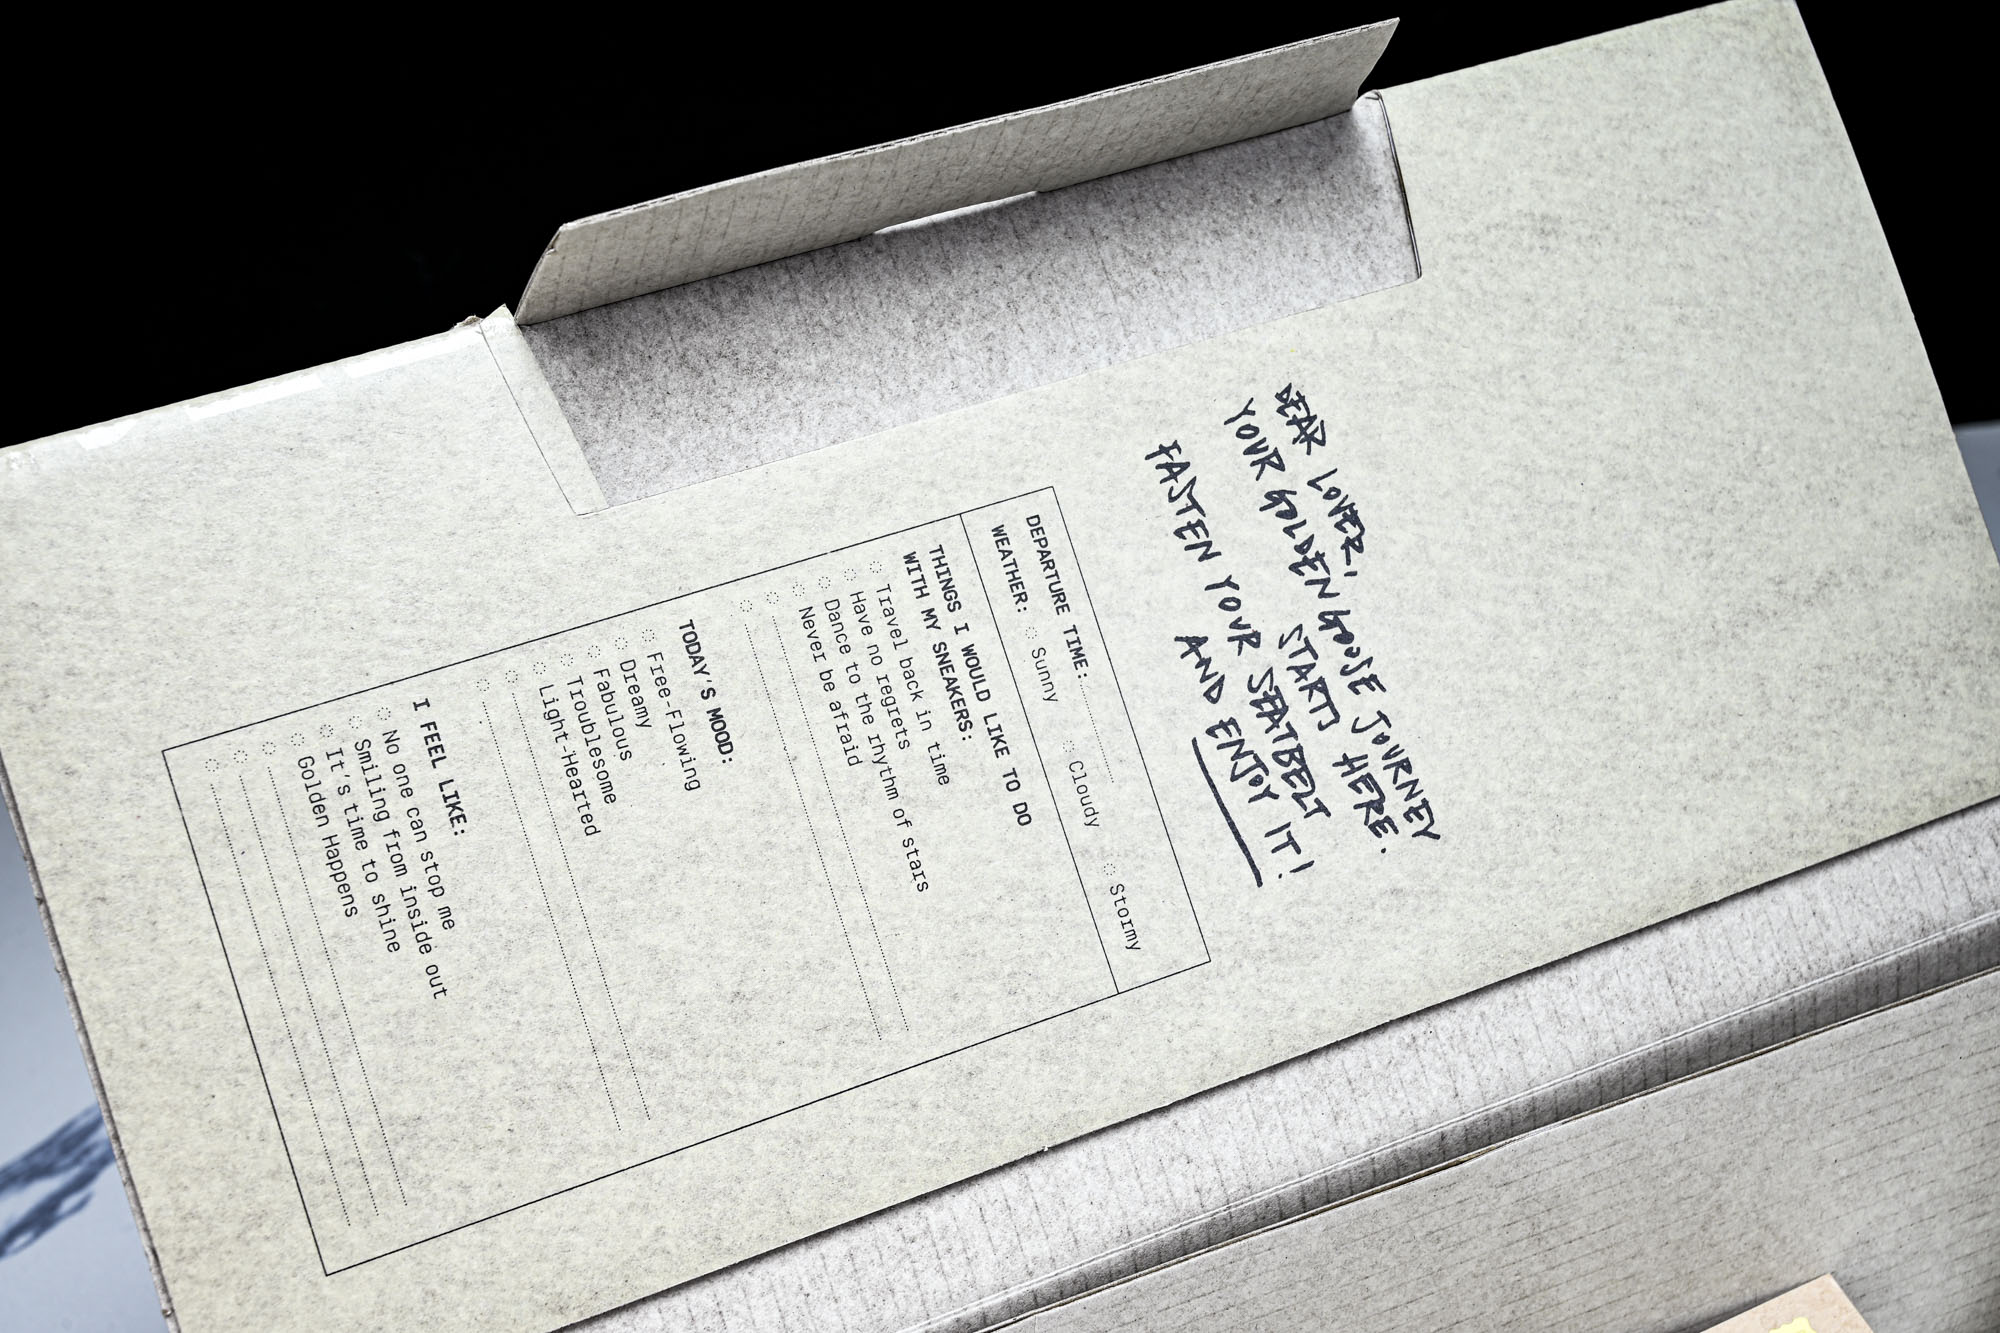 DEAR LOVER,
YOUR GOLDEN GOOSE JOURNEY
STARTS HERE.
FASTEN YOUR SEATBELT
AND ENJOY IT!
DEPARTURE TIME:
WEATHER: Sunny Cloudy Stormy
THINGS I WOULD LIKE TO DO
WITH MY SNEAKERS:
Travel back in time
Have no regrets
Dance to the rhythm of stars
Never be afraid
TODAY'S MOOD:
Free-Flowing
Dreamy
Fabulous
Troublesome
Light-Hearted
I FEEL LIKE:
No one can stop me
Smiling from inside out
It's time to shine
Golden Happens